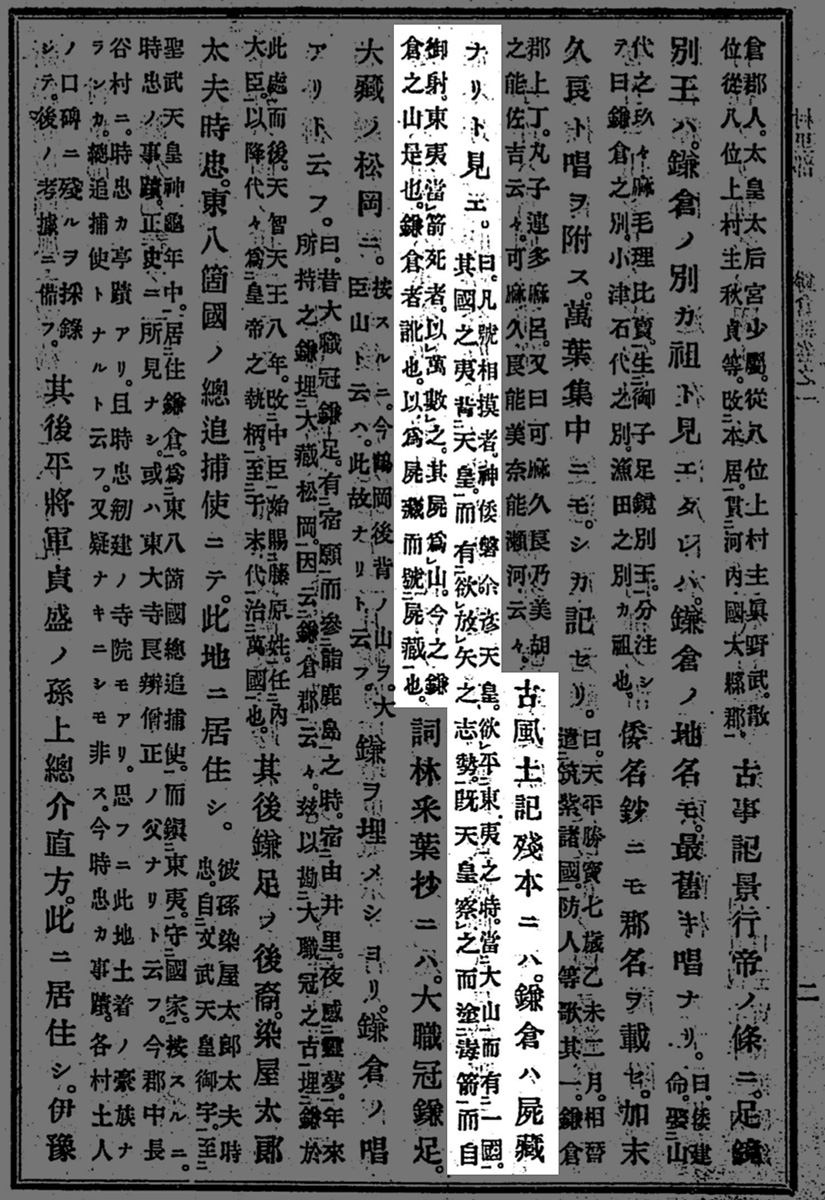 倉郡人。太皇太后宮少屬。從八位上村主眞野武。散
位從八位上村主秋貞等。改本居。貫河内國大縣郡。
古事記景行帝ノ條ニ。足鏡
別王ハ。鎌倉ノ別カ祖ト見エタレハ。鎌倉ノ地名モ。最舊キ唱ナリ。
曰。倭建
命。娶山
代之玖々麻毛理比賣。生御子足鏡別王。分注シ
テ曰鎌倉之別。小津石代之別。漁田之別カ祖也。
倭名鈔ニモ郡名ヲ載セ。加末
久良ト唱ヲ附ス。萬葉集中ニモ。シカ記セリ。
曰。天平勝寶七歳乙未二月。相
遣筑紫諸國。防人等歌其一。鎌倉
郡上丁。丸子連多麻呂。又曰可麻久良乃美胡
之能佐吉云々。可麻久良能美奈能瀬河。云々。
古風土記殘本ニハ。鎌倉ハ屍藏
ナリト見エ。
曰。凡號相摸者。神倭磐余彦天皇。欲平東夷之時。當大山而有一國。
其國之夷背天皇。而有欲放矢之志勢。既天皇察之而塗毒箭而自
御射。東夷當箭死者。以萬數之。其屍爲山。今之鎌
倉之山是也。鎌倉者訛也。以爲屍藏而號屍藏也。
詞林采葉抄ニハ。大職冠鎌足。
大藏ノ松岡ニ。
按スルニ。今鶴岡後背ノ山ヲ。大
臣山ト云ハ。此故ナリト云フ。
鎌ヲ埋メショリ。鎌倉ノ唱
アリト云フ。
曰。昔大職冠鎌足。有宿願而參詣鹿島之時。宿由井里。夜感靈夢。年來
所持之鎌埋大藏松岡。因云鎌倉郡云々。玆以勘大職冠之古埋鎌於
此處而後。天智天王八年。改中臣始賜藤原姓。任内
大臣。以降代々爲皇帝之執柄。至于末代治萬國也。
其後鎌足ノ後裔。染屋太郎
太夫時忠。東八箇國ノ總追捕使ニテ。此地ニ居住シ。
彼孫染屋太郎太夫時
忠。自文武天皇御宇。至
聖武天皇神龜年中。居住鎌倉。爲東八箇國總追捕使。而鎭東夷。守國家。按スルニ。
時忠ノ事蹟。正史ニ所見ナシ。或ハ東大寺良辨僧正ノ父ナリト云フ。今郡中長
谷村ニ。時忠カ亭蹟アリ。且時忠剏建ノ寺院モアリ。思フニ此地土着ノ豪族ナ
ランカ。總追捕使トナルト云フ。又疑ナキニシモ非ス。今時忠カ事蹟。各村土人
ノ口碑ニ殘ルヲ採錄
シテ。後ノ考據ニ備フ。
其後平將軍貞盛ノ孫上總介直方。此ニ居住シ。伊豫
二